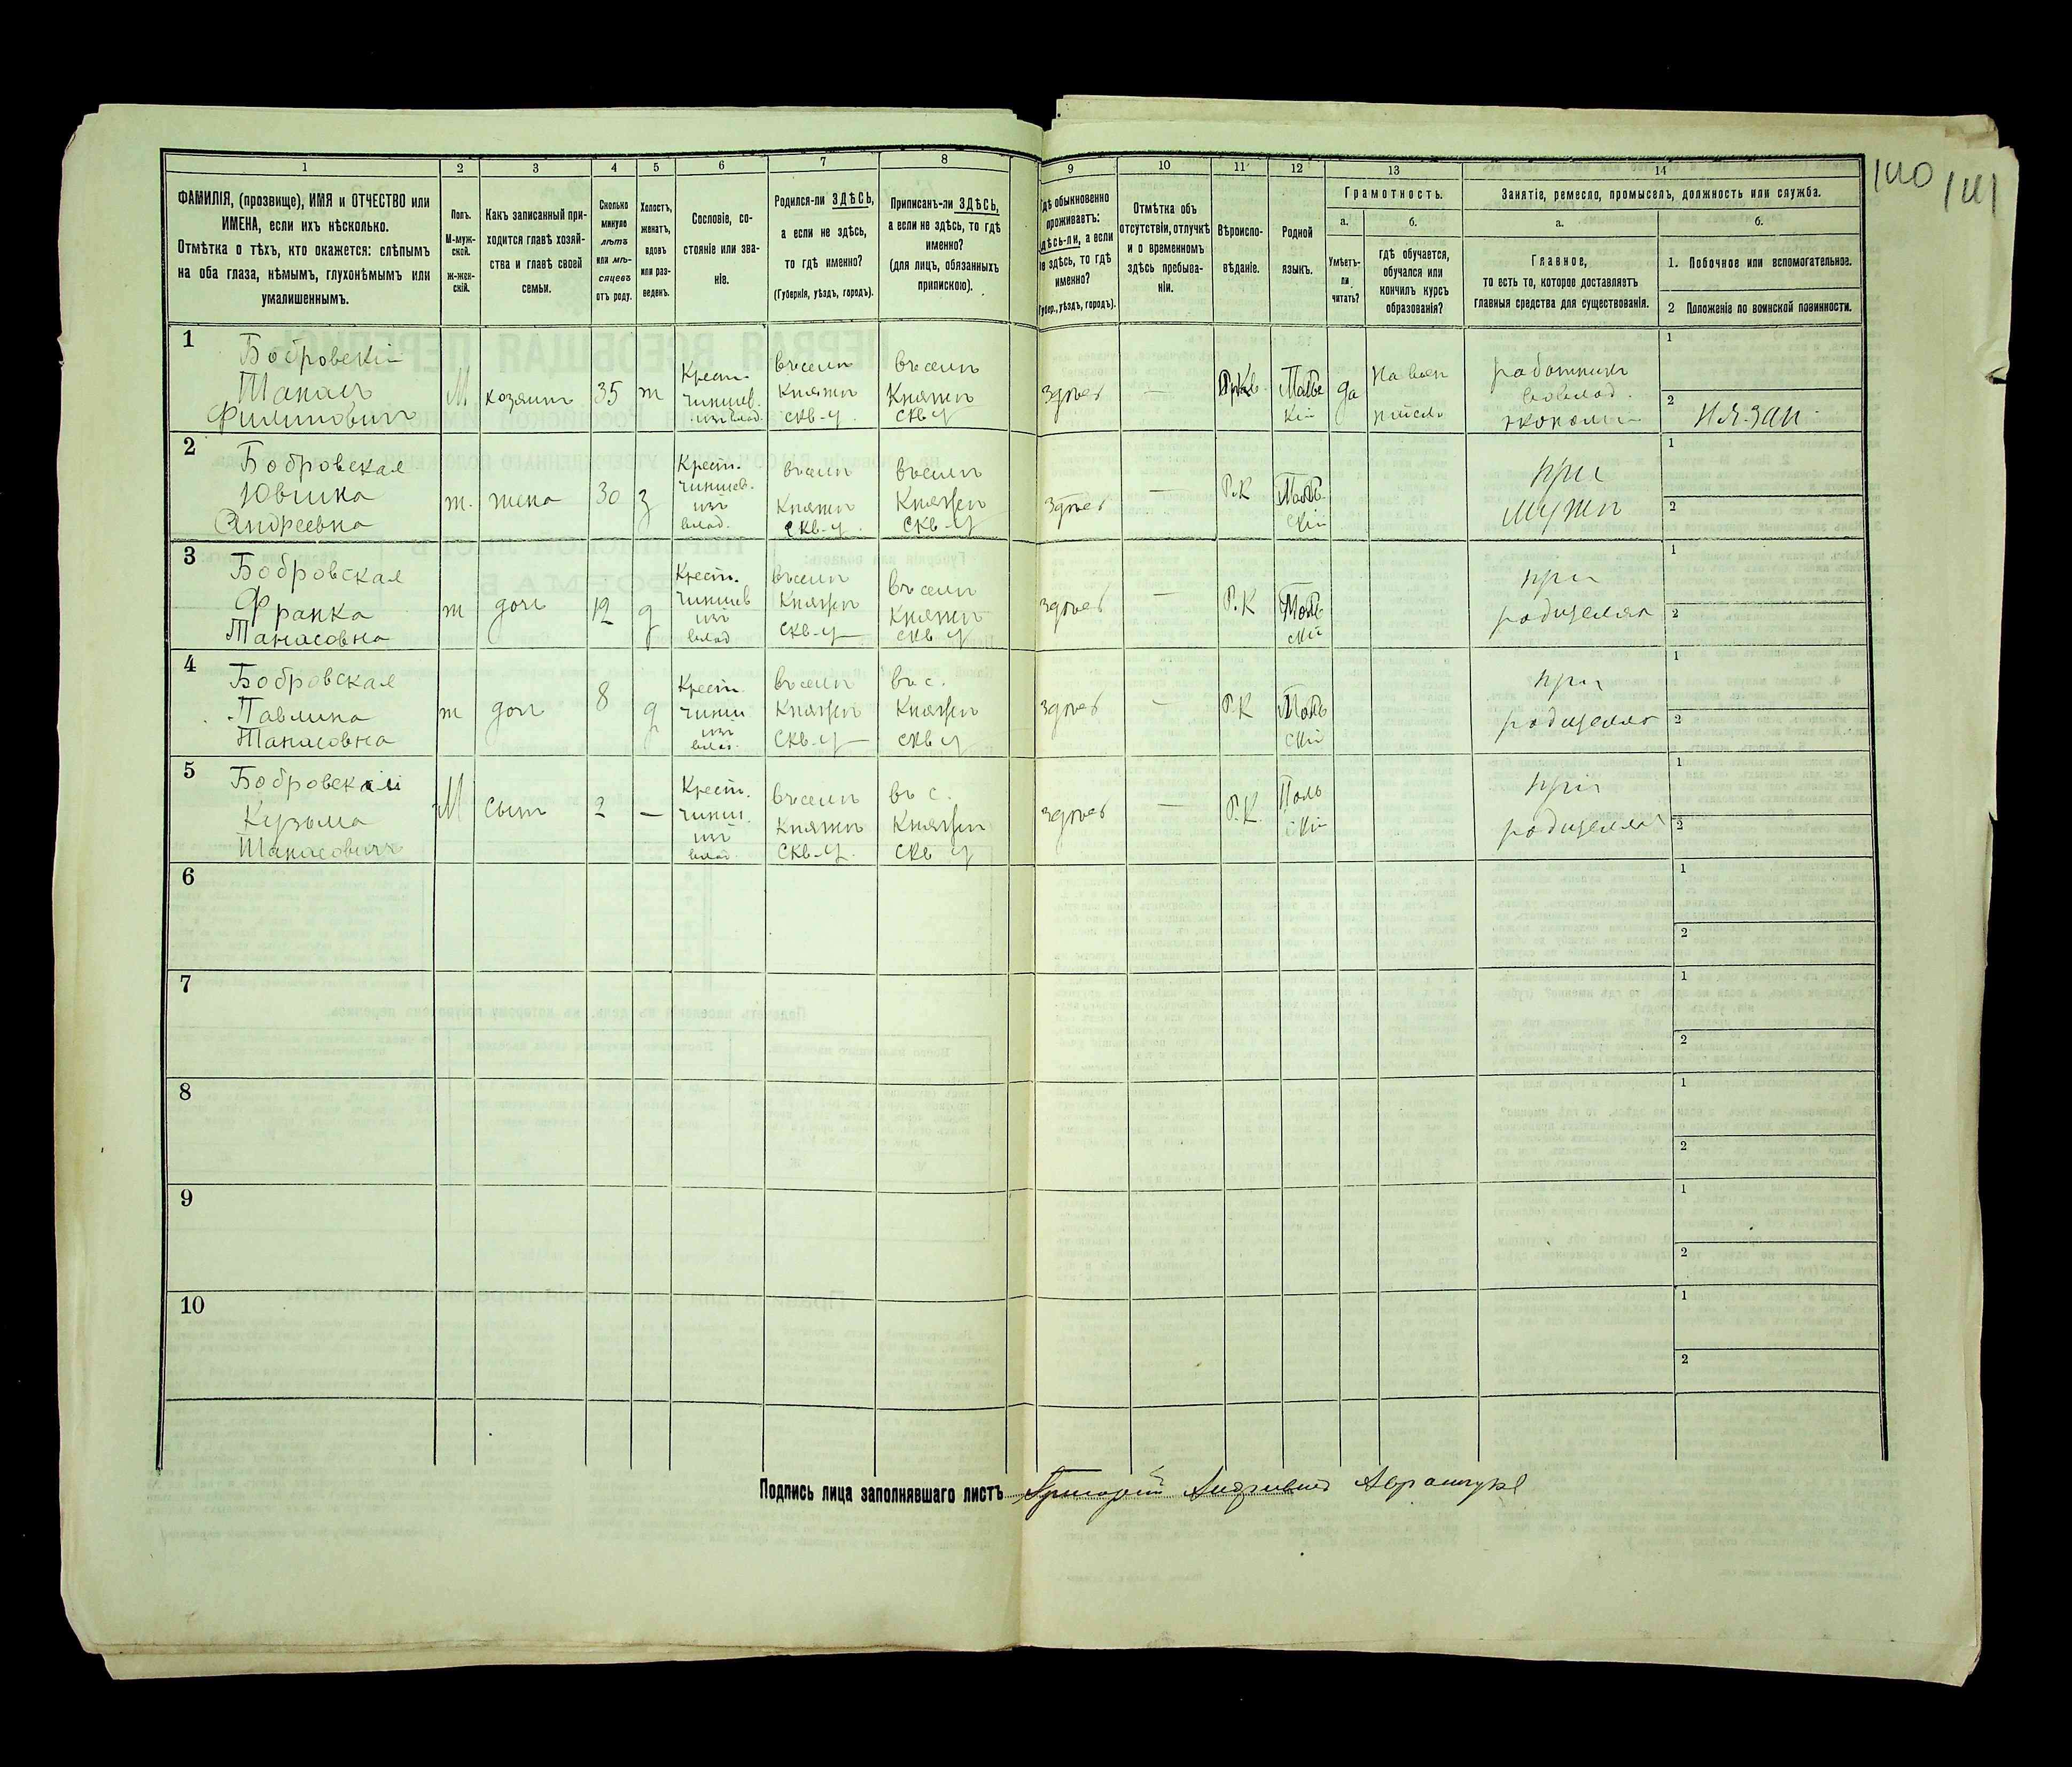 140
141
1
2
3
4
5
6
7
8
9
10
11
12
13
14
ФАМИЛІЯ, (прозвище), ИМЯ и ОТЧЕСТВО или
ИМЕНА, если ихъ нѣсколько.
Отмѣтка о тѣхъ, кто окажется: слѣпымъ
на оба глаза, нѣмымъ, глухонѣмымъ или
умалишеннымъ.
Полъ.
М-муж-
ской.
ж-жен-
скій.
Какъ записанный при-
ходится главѣ хозяй-
ства и главѣ своей
семьи.
Сколько
минуло
лѣтъ
или мѣ-
сяцевъ
отъ роду.
Холостъ,
женатъ,
вдовъ
или раз-
веденъ.
Сословіе, со-
стояніе или зва-
ніе.
Родился-ли ЗДѢСЬ,
а если не здѣсь,
то гдѣ именно?
(Губернія, уѣздъ, городъ).
Приписанъ-ли ЗДѢСЬ,
а если не здѣсь, то гдѣ
именно?
(для лицъ, обязанныхъ
припискою).
Гдѣ обыкновенно
проживаетъ:
здѣсь-ли, а если
не здѣсь, то гдѣ
именно?
(Губер., уѣздъ, городъ).
Отмѣтка объ
отсутствіи, отлучкѣ
и о временномъ
здѣсь пребыва-
ніи.
Вѣроиспо-
вѣданіе.
Родной
языкъ.
Грамотность.
а.
б.
Умѣетъ-
ли
читать?
гдѣ обучается,
обучался или
кончилъ курсъ
образованія?
Занятіе, ремесло, промыселъ, должность или служба.
а.
б.
Главное,
то есть то, которое доставляетъ
главныя средства для существованія.
1. Побочное или вспомогательное.
2 Положеніе по воинской повинности.
1
Бобровскій
Танасъ
Филиповичъ
М
хозяинъ
35
ж
Крест.
чиншев.
изъ влад.
въ селѣ
Княжи
скв-у.
въ селѣ
Княжи
скв-у
здѣсь
—
Р.К.
Поль
скій
да
работникъ
экономи
1
2
2
Бобровская
Ювшка
Андреевна
ж.
жена
30
з
Крест.
чиншев.
изъ
влад.
въ селѣ
Княжи
скв-у
въ селѣ
Княжи
скв-у
здѣсь
—
Р.К
Поль
скій
при
мужѣ
1
2
3
Бобровская
Франка
Танасовна
ж
доч
12
д
Крест.
чиншев
изъ
влад
въ селѣ
Княжи
скв-у
въ селѣ
Княжи
скв у
здѣсь
—
Р.К
Поль
скій
при
родителях
1
2
4
Бобровская
Павлина
Танасовна
ж
доч
8
д
Крест.
чинш
изъ
влад.
въ селѣ
Княжи
скв-у
въ с.
Княжи
скв у
здѣсь
—
Р.К
Поль
скій
при
родителях
1
2
5
Бобровскій
Кузьма
Танасовичъ
М
сынъ
2
—
Крест.
чинш.
изъ
влад.
въ селѣ
Княжи
скв-у.
въ с.
Княжи
скв у
здѣсь
—
Р.К.
Поль
скій
при
родителях
1
2
6
1
2
7
1
2
8
1
2
9
1
2
10
1
2
Подпись лица заполнявшаго листъ Григорій